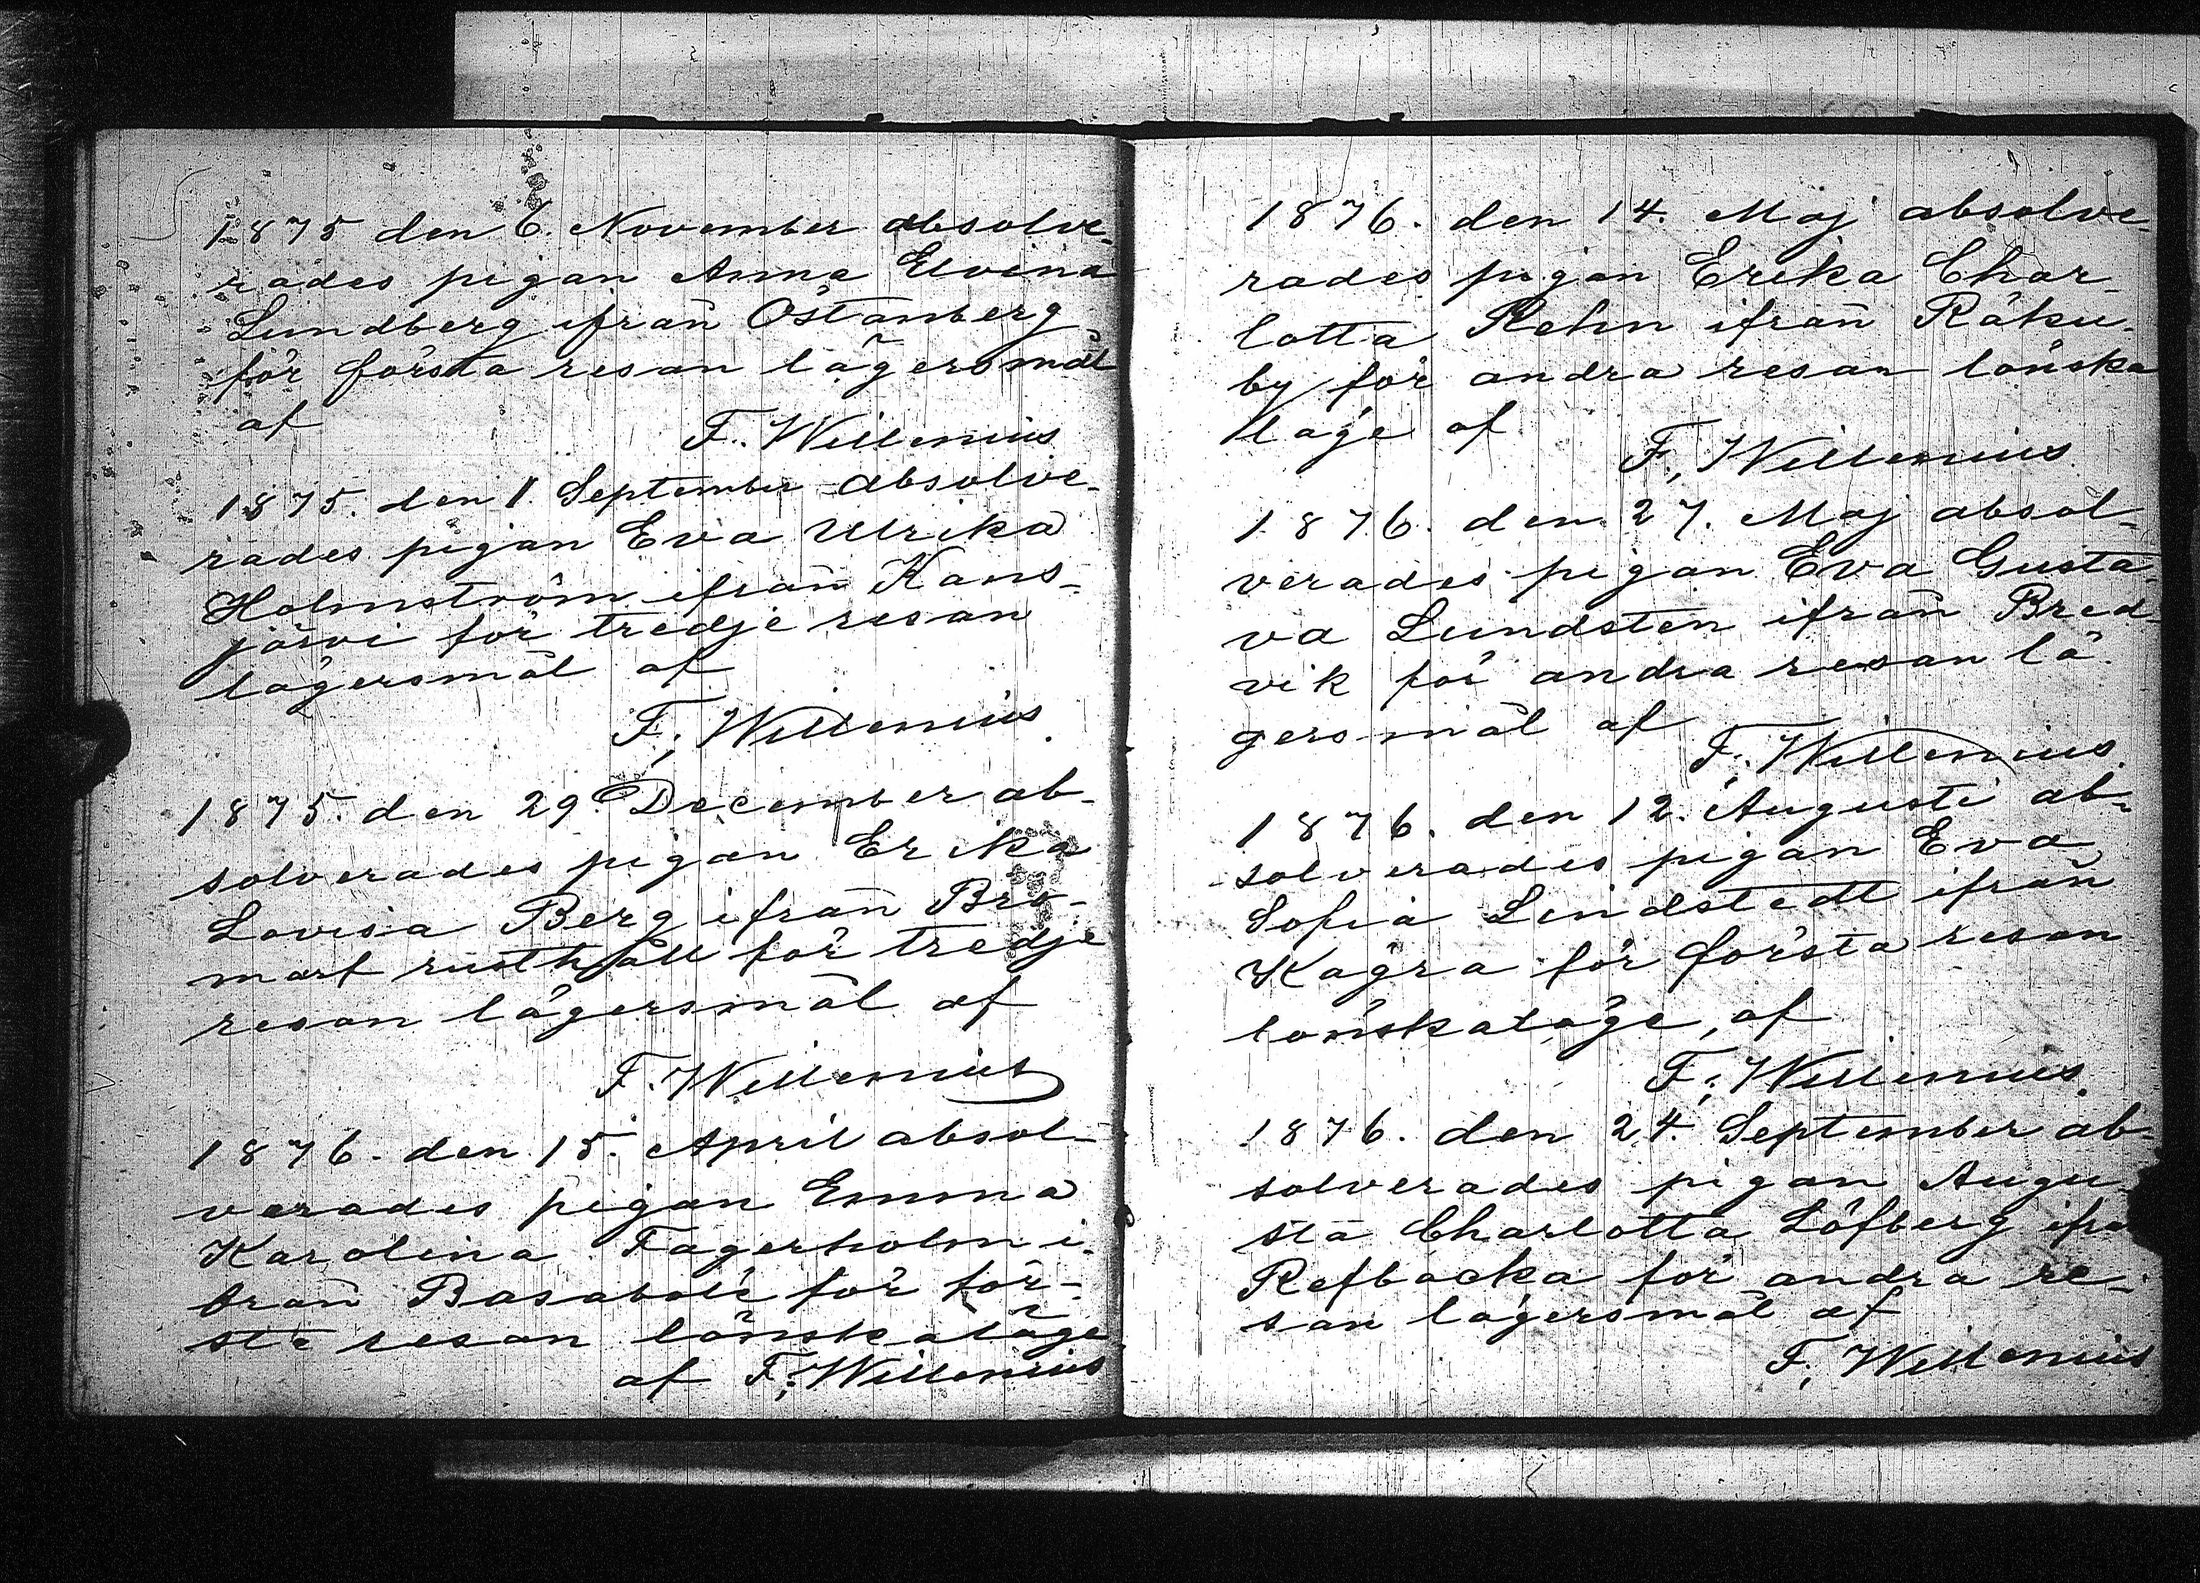 1875 den 6. November absolve-
rades pigan Anna Elvina
Lundberg ifrån Östanberg
för första resan lägersmål
af
F. Willenius
1875. den 1. September absolve-
rades pigan Eva Ulrika
Holmström ifrån Kans-
järvi för tredje resan
lägersmål af
F. Willenius.
1875. den 29. December ab-
solverades pigan Erika
Lovisa Berg ifrån Bro-
marf rusthåll för tredje
resan lägersmål af
F. Willenius
1876. den 15. April absol-
verades pigan Emma
Karolina Fagerholm i-
från Basaböle för för-
sta resan lönskaläge
af F. Willenius
1876. den 14. Maj absolve-
rades pigan Erika Char-
lotta Rehn ifrån Räku-
by för andra resan lönska
läge af
F. Willenius
1876. den 27. Maj absol-
verades pigan Eva Gusta-
va Lundsten ifrån Bred-
vik för andra resan lä-
gersmål af
F. Willenius.
1876. den 12. Augusti ab-
solverades pigan Eva
Sofia Lindstedt ifrån
Kagra för första resan
lönskaläge, af
F. Willenius.
1876. den 24. September ab-
solverades pigan Augu-
sta Charlotta Löfberg ifrå
Refbacka för andra re-
san lägersmål af
F. Willenius